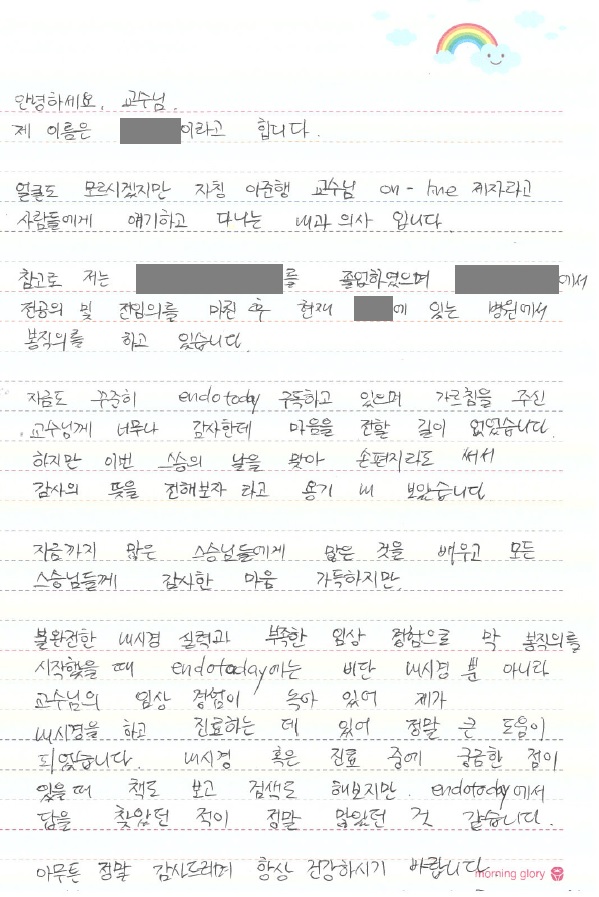 안녕하세요, 교수님.
제 이름은 이라고 합니다.
얼굴도 모르시겠지만 자칭 이준행 교수님 on-line 제자라고
사람들에게 얘기하고 다니는 내과 의사 입니다.
참고로 저는 를 졸업하였으며 에서
전공의 및 전임의를 마친 후 현재 에 있는 병원에서
봉직의를 하고 있습니다.
지금도 꾸준히 endotoday 구독하고 있으며 가르침을 주신
교수님께 너무나 감사한데 마음을 전할 길이 없었습니다.
하지만 이번 스승의 날을 맞아 손편지라도 써서
감사의 뜻을 전해보자 라고 용기 내 보았습니다
지금까지 많은 스승님들에게 많은 것을 배우고 모든
스승님들께 감사한 마음 가득하지만,
불완전한 내시경 실력과 부족한 임상 경험으로 막 봉직의를
시작했을 때 endotoday에는 비단 내시경 뿐 아니라
교수님의 임상 경험이 녹아 있어 제가
내시경을 하고 진료하는 데 있어 정말 큰 도움이
되었습니다. 내시경 혹은 진료 중에 궁금한 점이
있을때 책도 보고 검색도 해보지만. endotoday에서
답을 찾았던 적이 정말 많았던 것 같습니다.
아무튼 정말 감사드리며 항상 건강하시기 바랍니다.
morning glory